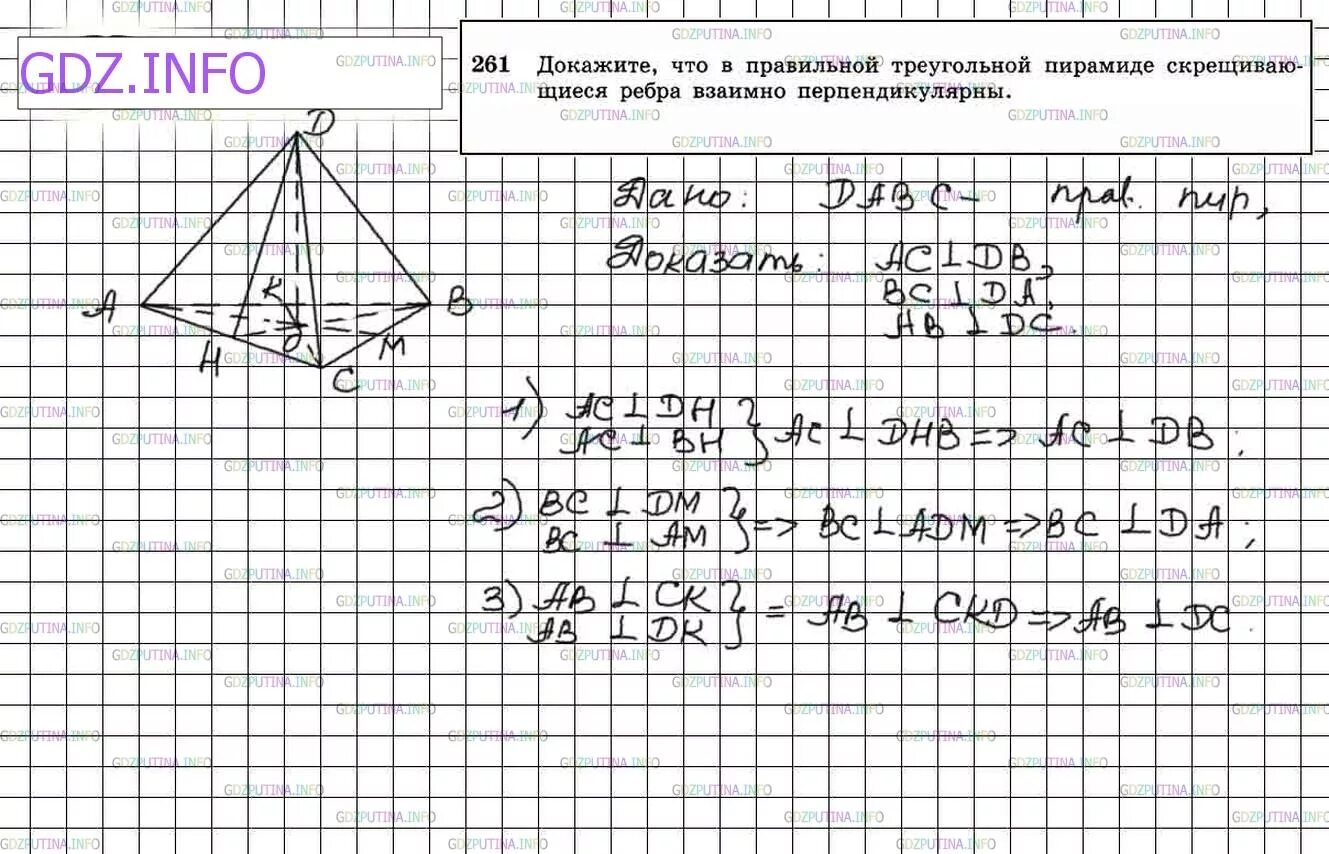 GDZ.INFO
261 Докажите, что в правильной треугольной пирамиде скрещиваю-
щиеся ребра взаимно перпендикулярны.
D
A
K
B
O
H
M
C
Дано: DABC – прав. пир,
Доказать: AC ⊥ DB,
BC ⊥ DA,
AB ⊥ DC.
1) AC ⊥ DH
AC ⊥ BH } AC ⊥ DHB => AC ⊥ DB;
2) BC ⊥ DM
BC ⊥ AM } => BC ⊥ ADM => BC ⊥ DA;
3) AB ⊥ CK
AB ⊥ DK } = AB ⊥ CKD => AB ⊥ DC.
GDZPUTINA.INFO